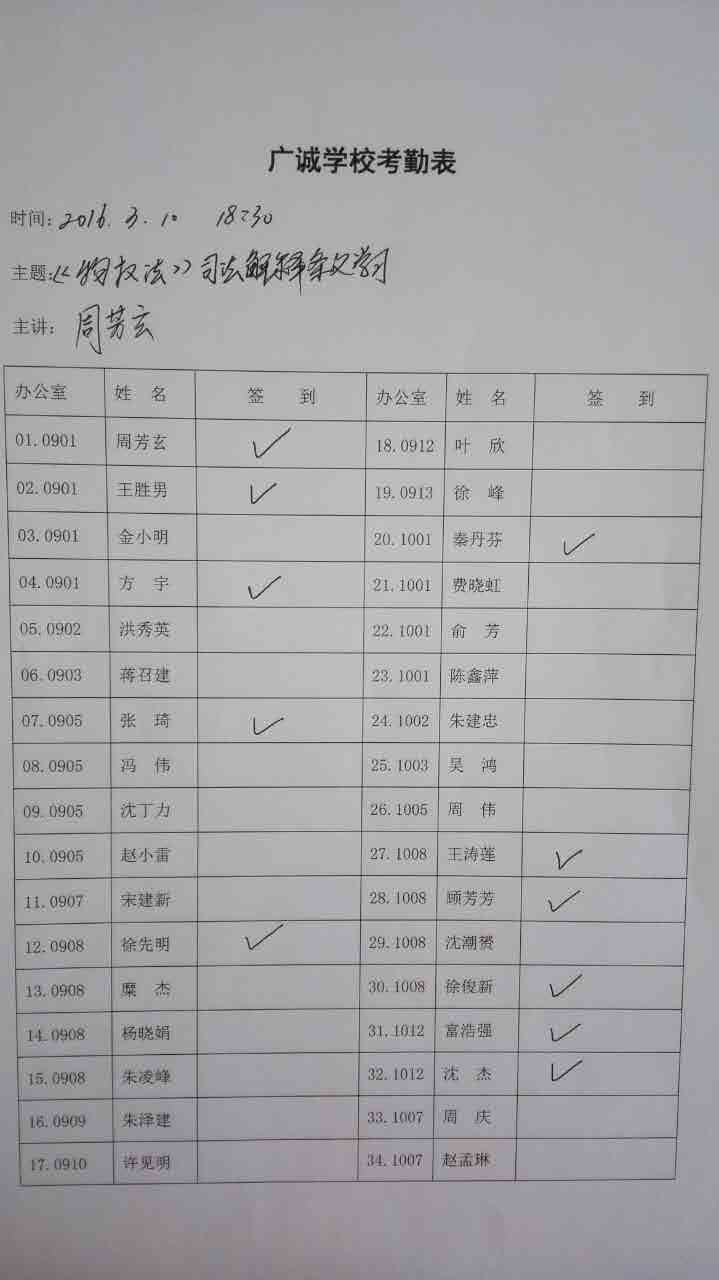 广诚学校考勤表
时间: 2016.3.10 18:30
主题:《物权法》司法解释条文学习
主讲: 周芳玄
办公室 姓 名 签 到 办公室 姓 名 签 到
01.0901 周芳玄 ✓ 18.0912 叶 欣
02.0901 王胜男 ✓ 19.0913 徐 峰
03.0901 金小明 20.1001 秦丹芬 ✓
04.0901 方 宇 ✓ 21.1001 费晓虹
05.0902 洪秀英 22.1001 俞 芳
06.0903 蒋召建 23.1001 陈鑫萍
07.0905 张 琦 ✓ 24.1002 朱建忠
08.0905 冯 伟 25.1003 吴 鸿
09.0905 沈丁力 26.1005 周 伟
10.0905 赵小雷 27.1008 王涛莲 ✓
11.0907 宋建新 28.1008 顾芳芳 ✓
12.0908 徐先明 ✓ 29.1008 沈潮赟
13.0908 糜 杰 30.1008 徐俊新 ✓
14.0908 杨晓娟 31.1012 富浩强 ✓
15.0908 朱凌峰 32.1012 沈 杰 ✓
16.0909 朱泽建 33.1007 周 庆
17.0910 许见明 34.1007 赵孟琳